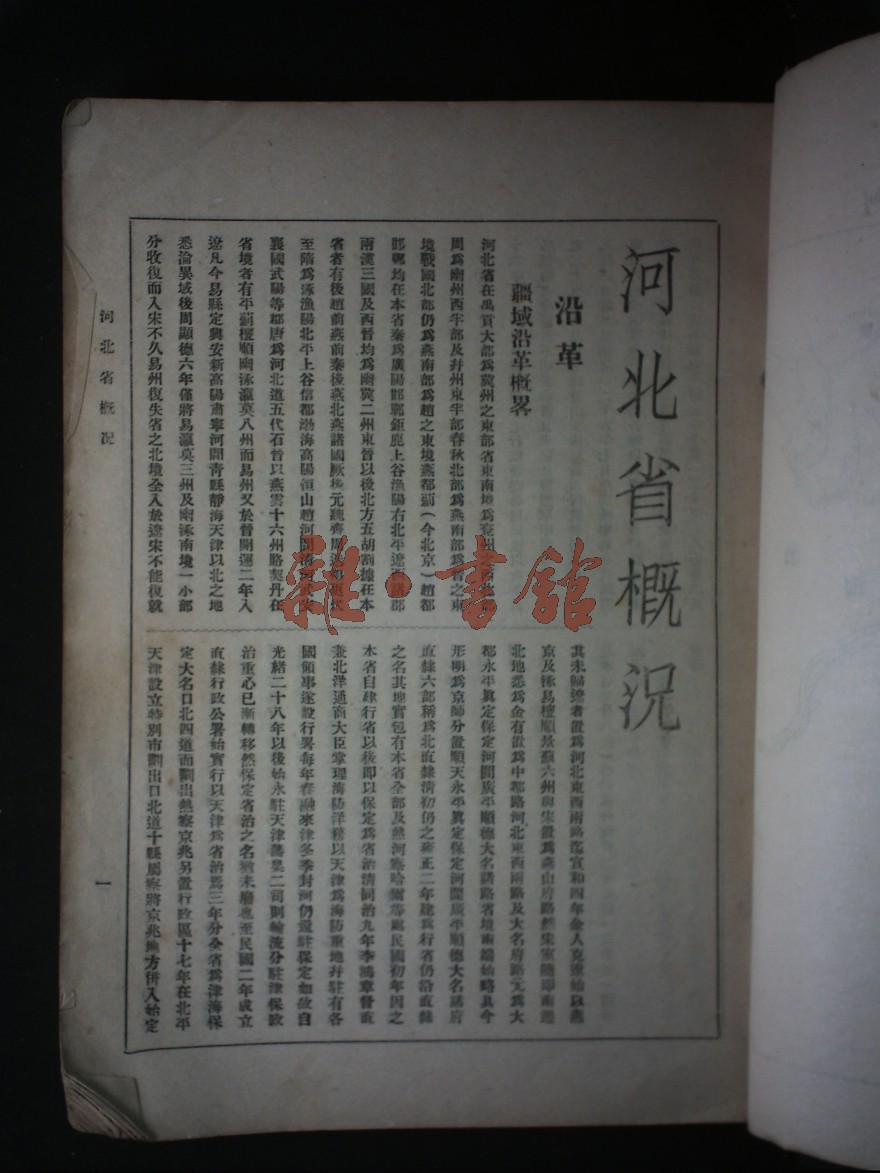 河北省概況
沿革
疆域沿革概畧
河北省在禹貢大部爲冀州之東部省東南境爲兗州之西北部
周爲幽州西半部及幷州東半部春秋北部爲燕南部爲晉之東
境戰國北部仍爲燕南部爲趙之東境燕都薊(今北京)趙都
邯鄲均在本省秦爲廣陽邯鄲鉅鹿上谷漁陽右北平遼西諸郡
兩漢三國及西晉均爲幽冀二州東晉以後北方五胡割據在本
省者有後趙前燕前秦後燕北燕諸國厥後元魏齊周迭
至隋爲涿漁陽北平上谷信都渤海高陽恒山趙河間
襄國武陽等郡唐爲河北道五代石晉以燕雲十六州賂契丹在
省境者有平薊檀順幽涿瀛莫八州而易州又於晉開運二年入
遼凡今易縣定興安新高陽肅寧河間青縣靜海天津以北之地
悉淪異域後周顯德六年僅將易瀛莫三州及幽涿南境一小部
分收復而入宋不久易州復失省之北境全入於遼宋不能復就
其未歸遼者置爲河北東西兩路迄宣和四年金人克遼始以燕
京及涿易檀順景薊六州與宋置爲燕山府路然宋室隨即南遷
北地悉爲金有置爲中都路河北東西兩路及大名府路元爲大
都永平眞定保定河間廣平順德大名諸路省境兩端始略具今
形明爲京師分置順天永平眞定保定河間廣平順德大名諸府
直隸六部稱爲北直隸淸初仍之雍正二年建爲行省仍沿直隸
之名其地實包有本省全部及熱河察哈爾等處民國初年因之
本省自肆行省以後即以保定爲省治淸同治九年李鴻章督直
兼北洋通商大臣掌理海防洋務以天津爲海防重地幷駐有各
國領事遂設行署每年春融來津冬季封河仍還駐保定如故自
光緒二十八年以後始永駐天津藩臬二司則輪流分駐津保政
治重心已漸轉移然保定省治之名猶未廢也至民國二年成立
直隸行政公署始實行以天津爲省治焉三年分全省爲津海保
定大名口北四道而劃出熱察京兆另置行政區十七年在北平
天津設立特別市劃出口北道十縣屬察將京兆地方併入始定
河北省概況
一
雜·書館